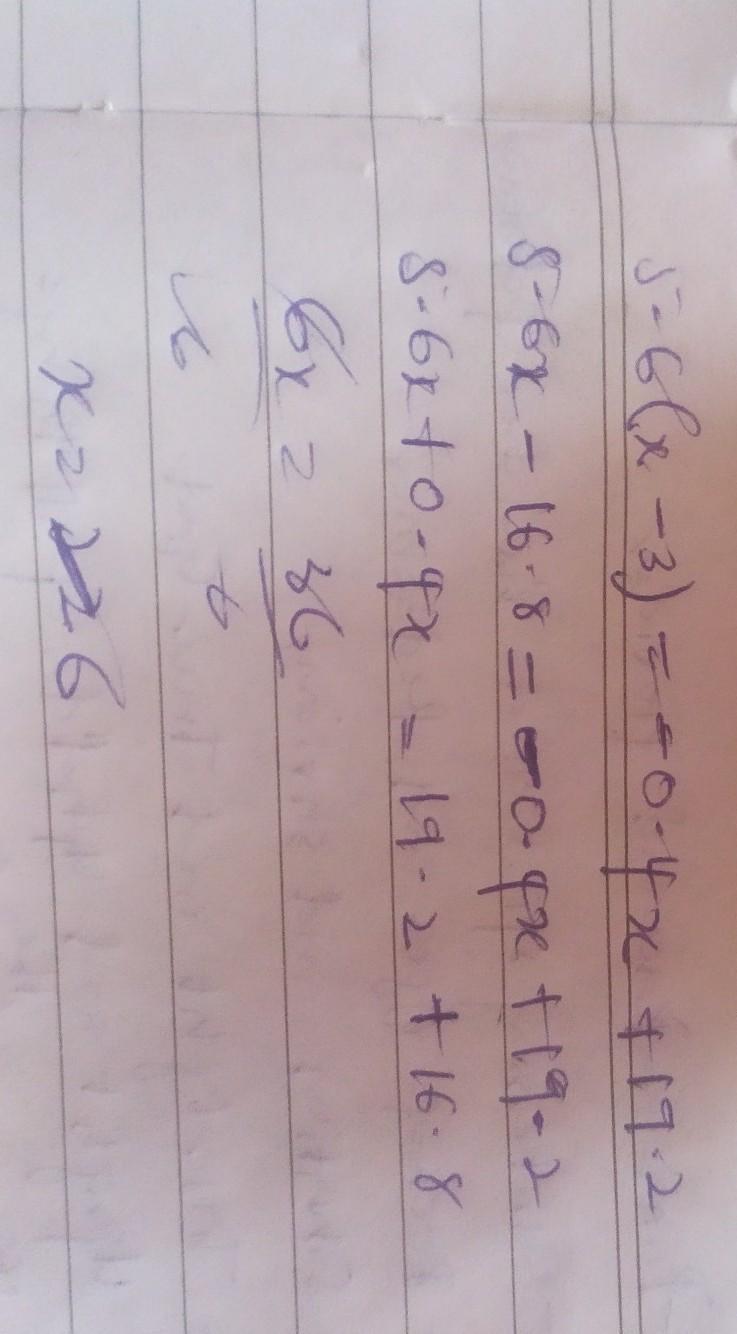 5.6(x - 3) = -0.4x + 19.2
5.6x - 16.8 = -0.4x + 19.2
5.6x + 0.4x = 19.2 + 16.8
6x = 36
6 6
x = 6